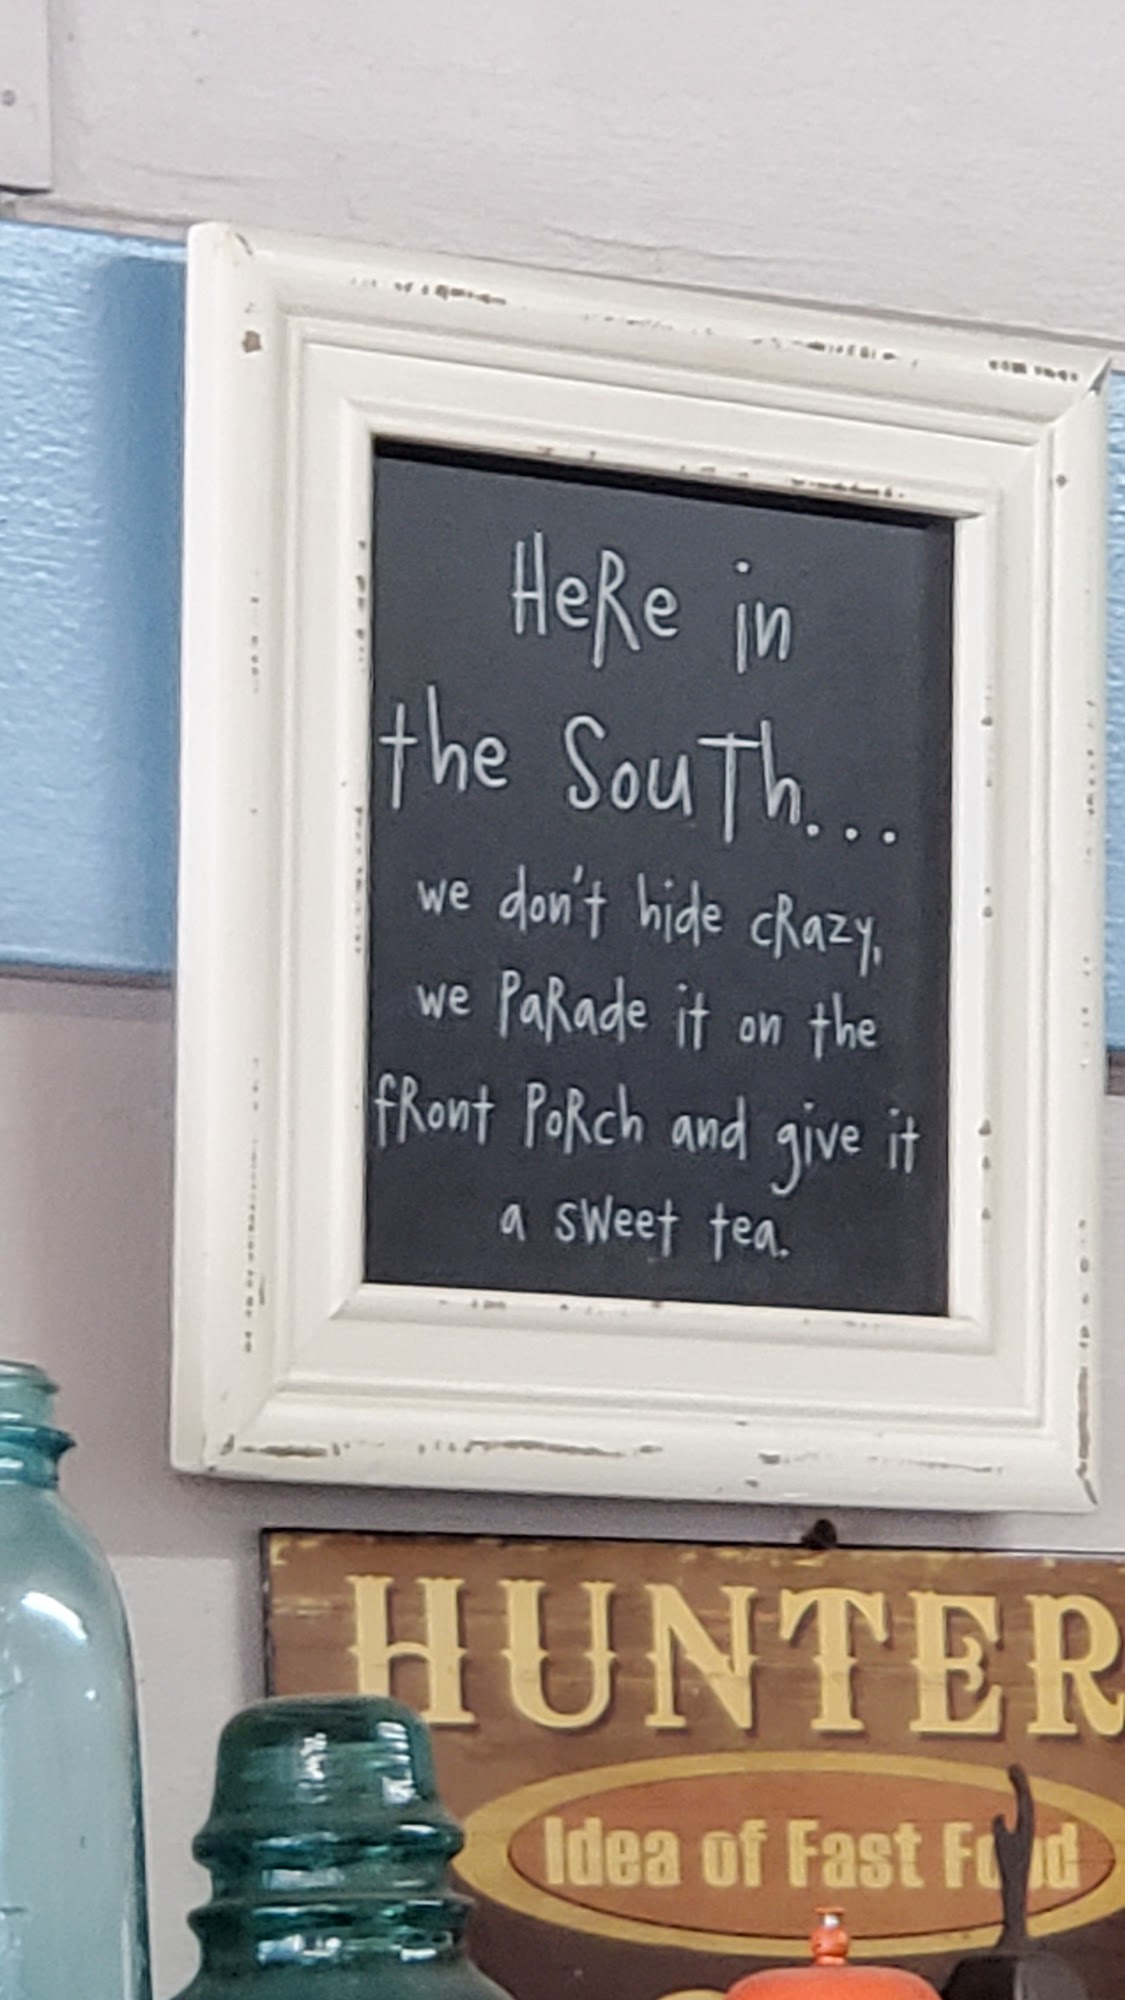 HeRe in
the SouTh...
we don't hide cRazy,
we PaRade it on the
fRont PoRch and give it
a sweet tea.
HUNTER
Idea of Fast Food